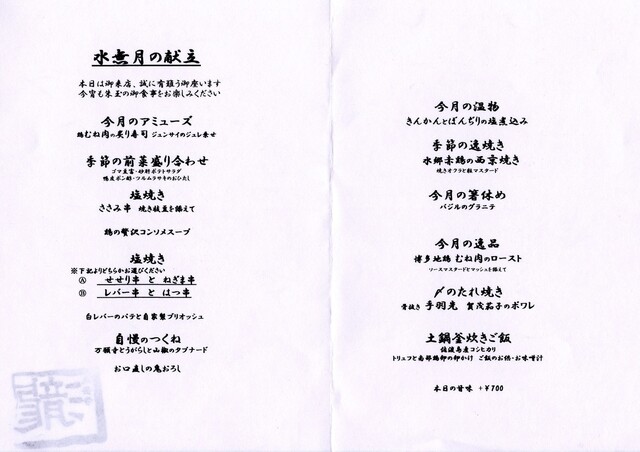 水無月の献立
本日は御来店、誠に有難う御座います
今宵も朱玉の御食事をお楽しみください
今月のアミューズ
鶏むね肉の炙り寿司 ジュンサイのジュレ乗せ
季節の前菜盛り合わせ
ゴマ豆富・砂肝ポテトサラダ
鴨皮ポン酢・ツルムラサキのおひたし
塩焼き
ささみ串 焼き枝豆を添えて
鶏の贅沢コンソメスープ
塩焼き
※下記よりどちらかお選びください
Ⓐ せせり串 と ねぎま串
Ⓑ レバー串 と はつ串
白レバーのパテと自家製ブリオッシュ
自慢のつくね
万願寺とうがらしと山椒のタプナード
お口直しの鬼おろし
今月の温物
きんかんとぼんぢりの塩煮込み
季節の逸焼き
水郷赤鶏の西京焼き
焼きオクラと粒マスタード
今月の箸休め
バジルのグラニテ
今月の逸品
博多地鶏 むね肉のロースト
ソースマスタードとマッシュを添えて
〆のたれ焼き
骨抜き 手羽先 賀茂茄子のポワレ
土鍋釜炊きご飯
佐渡島産コシヒカリ
トリュフと南部鶏卵の卵かけ ご飯のお供・お味噌汁
本日の甘味 +¥700